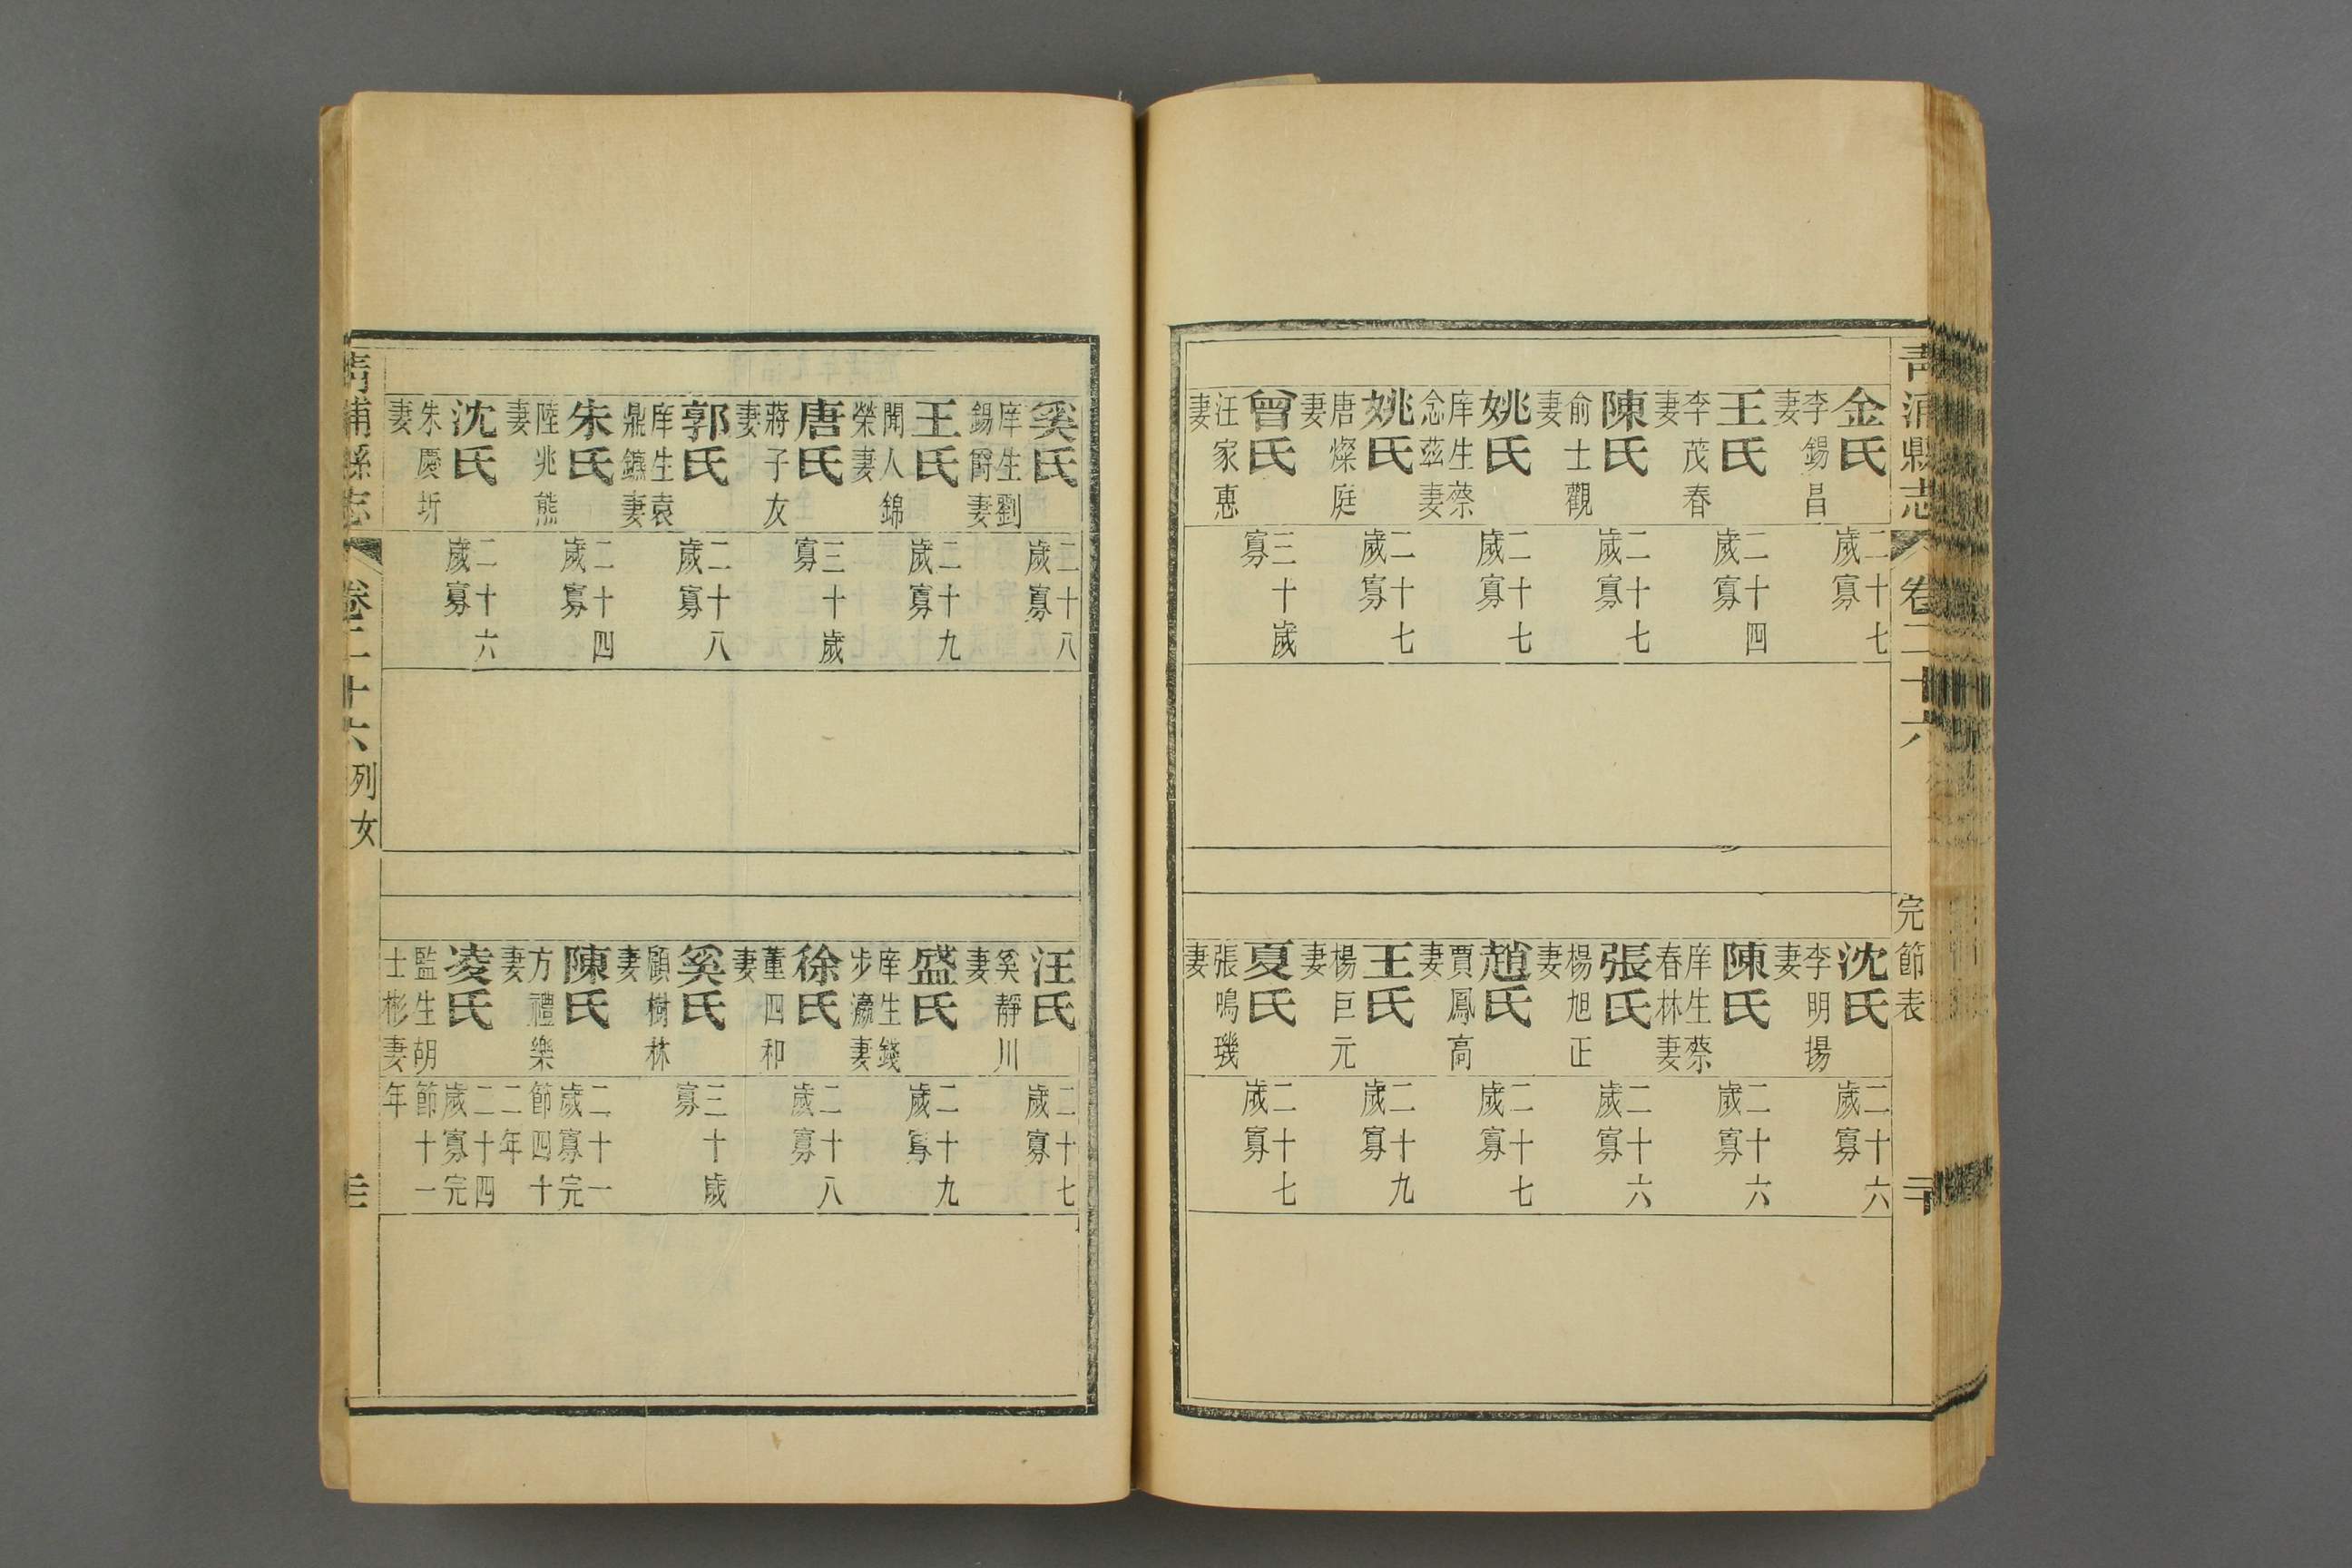 青浦縣志
卷二十六
完節表
金氏
李錫昌
妻
二十七
歲寡
王氏
李茂春
妻
二十四
歲寡
陳氏
俞士觀
妻
二十七
歲寡
姚氏
庠生蔡
念茲妻
二十七
歲寡
姚氏
唐燦庭
妻
二十七
歲寡
曾氏
汪家惠
妻
三十歲
寡
沈氏
李明揚
妻
二十六
歲寡
陳氏
庠生蔡
春林妻
二十六
歲寡
張氏
楊旭正
妻
二十六
歲寡
趙氏
賈鳳高
妻
二十七
歲寡
王氏
楊巨元
妻
二十九
歲寡
夏氏
張鳴璣
妻
二十七
歲寡
奚氏
庠生劉
錫爵妻
二十八
歲寡
王氏
聞人錦
榮妻
二十九
歲寡
唐氏
蔣子友
妻
三十歲
寡
郭氏
庠生袁
鼎鑣妻
二十八
歲寡
朱氏
陸兆熊
妻
二十四
歲寡
沈氏
朱慶圻
妻
二十六
歲寡
汪氏
奚靜川
妻
二十七
歲寡
盛氏
庠生錢
步瀛妻
二十九
歲寡
徐氏
董四和
妻
二十八
歲寡
奚氏
顧樹林
妻
三十歲
寡
陳氏
方禮樂
妻
二十一
歲寡完
節四十
二年
凌氏
監生胡
士彬妻
二十四
歲寡完
節十一
年
青浦縣志
卷二十六
列女